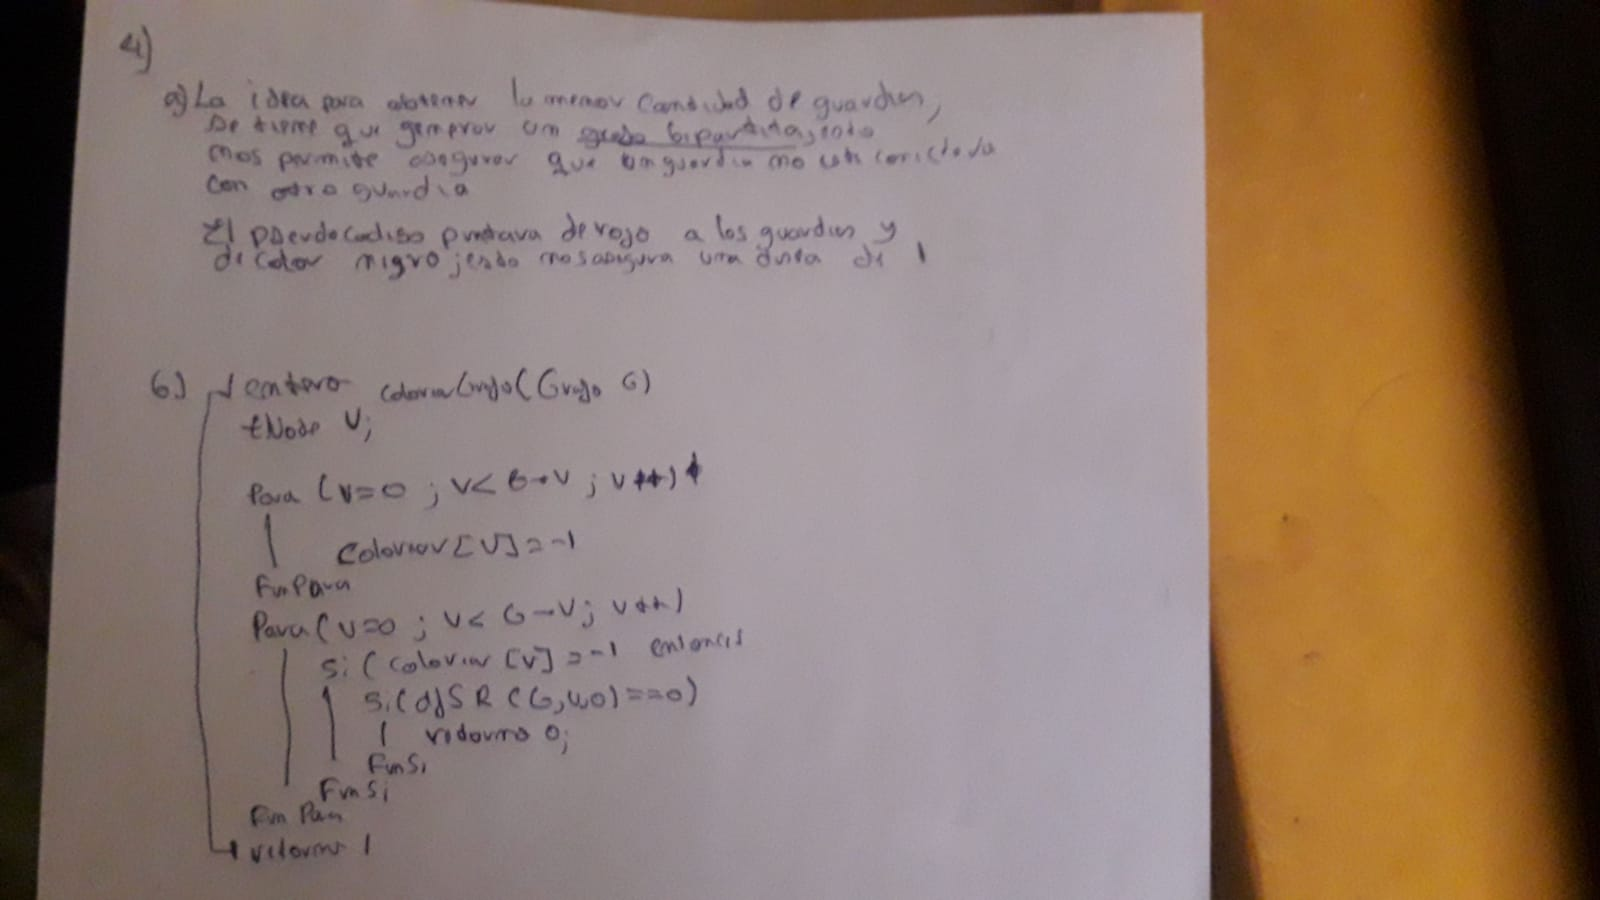 4)
a) La idea para obtener la menor cantidad de guardias,
Se tiene que generar un grafo bipartito, esto
nos permite asegurar que un guardia no este conectado
con otro guardia
El pseudocodigo pintara de rojo a los guardias y
de color negro; esto nos asegura una dista de 1
b) entero colorearGrafo(Grafo G)
tNode V;
Para (V=0 ; V< G→V ; V++)
Colorear[V]=-1
FinPara
Para (V=0 ; V< G→V; V++)
Si (Colorear [V] = -1 entonces
Si (dfSR (G,V,0)==0)
retorna 0;
FinSi
FinSi
Fin Para
retorna 1